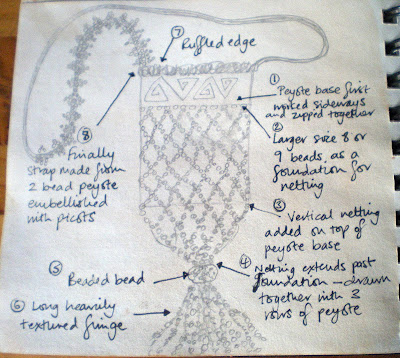 ⑦ Ruffled edge
① Peyote base first
worked sideways
and zipped together
② Larger size 8 or
9 beads, as a
foundation for
netting
③ Vertical netting
added on top of
peyote base
④ Netting extends past
foundation – drawn
together with 3
rows of peyote
⑤ Beaded bead
⑥ Long heavily
textured fringe
⑧ Finally
strap made from
2 bead peyote
embellished
with picots